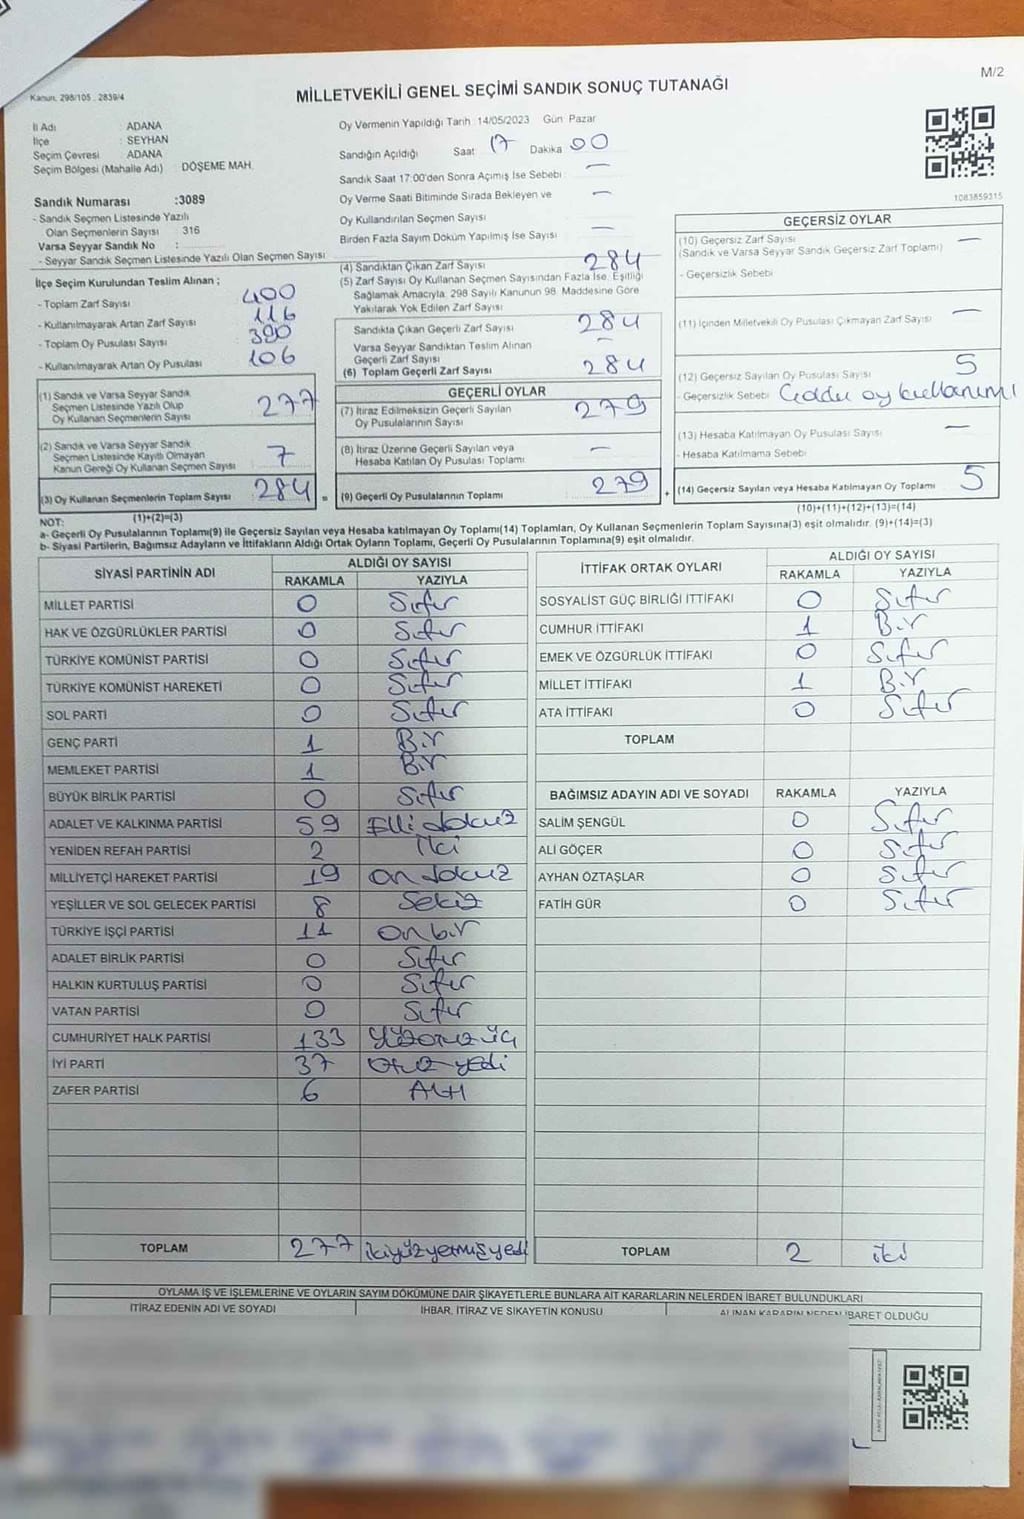 M/2
Kanun, 298/105 , 2839/4
MİLLETVEKİLİ GENEL SEÇİMİ SANDIK SONUÇ TUTANAĞI
İl Adı : ADANA
İlçe : SEYHAN
Seçim Çevresi : ADANA
Seçim Bölgesi (Mahalle Adı) : DÖŞEME MAH.
Sandık Numarası :3089
- Sandık Seçmen Listesinde Yazılı
Olan Seçmenlerin Sayısı : 316
Varsa Seyyar Sandık No :
- Seyyar Sandık Seçmen Listesinde Yazılı Olan Seçmen Sayısı
Oy Vermenin Yapıldığı Tarih :14/05/2023 Gün Pazar
Sandığın Açıldığı Saat 17 Dakika 00
Sandık Saat 17:00'den Sonra Açımış İse Sebebi : —
Oy Verme Saati Bitiminde Sırada Bekleyen ve —
Oy Kullandırılan Seçmen Sayısı
Birden Fazla Sayım Döküm Yapılmış İse Sayısı —
1083859315
İlçe Seçim Kurulundan Teslim Alınan ;
- Toplam Zarf Sayısı 400
- Kullanılmayarak Artan Zarf Sayısı : 116
- Toplam Oy Pusulası Sayısı 390
- Kullanılmayarak Artan Oy Pusulası 106
(1) Sandık ve Varsa Seyyar Sandık
Seçmen Listesinde Yazılı Olup
Oy Kullanan Seçmenlerin Sayısı 277
(2) Sandık ve Varsa Seyyar Sandık
Seçmen Listesinde Kayıtlı Olmayan
Kanun Gereği Oy Kullanan Seçmen Sayısı 7
(3) Oy Kullanan Seçmenlerin Toplam Sayısı 284 =
(1)+(2)=(3)
(4) Sandıktan Çıkan Zarf Sayısı 284
(5) Zarf Sayısı Oy Kullanan Seçmen Sayısından Fazla İse, Eşitliği
Sağlamak Amacıyla, 298 Sayılı Kanunun 98. Maddesine Göre
Yakılarak Yok Edilen Zarf Sayısı
Sandıkta Çıkan Geçerli Zarf Sayısı 284
Varsa Seyyar Sandıktan Teslim Alınan
Geçerli Zarf Sayısı —
(6) Toplam Geçerli Zarf Sayısı 284
GEÇERLİ OYLAR
(7) İtiraz Edilmeksizin Geçerli Sayılan
Oy Pusulalarının Sayısı 279
(8) İtiraz Üzerine Geçerli Sayılan veya
Hesaba Katılan Oy Pusulası Toplamı —
(9) Geçerli Oy Pusulalarının Toplamı 279 +
GEÇERSİZ OYLAR
(10) Geçersiz Zarf Sayısı —
(Sandık ve Varsa Seyyar Sandık Geçersiz Zarf Toplamı)
- Geçersizlik Sebebi
(11) İçinden Milletvekili Oy Pusulası Çıkmayan Zarf Sayısı —
(12) Geçersiz Sayılan Oy Pusulası Sayısı 5
- Geçersizlik Sebebi oy kullanımı
(13) Hesaba Katılmayan Oy Pusulası Sayısı —
- Hesaba Katılmama Sebebi
(14) Geçersiz Sayılan veya Hesaba Katılmayan Oy Toplamı 5
(10)+(11)+(12)+(13)=(14)
NOT:
a- Geçerli Oy Pusulalarının Toplamı(9) ile Geçersiz Sayılan veya Hesaba katılmayan Oy Toplamı(14) Toplamları, Oy Kullanan Seçmenlerin Toplam Sayısına(3) eşit olmalıdır. (9)+(14)=(3)
b- Siyasi Partilerin, Bağımsız Adayların ve İttifakların Aldığı Ortak Oyların Toplamı, Geçerli Oy Pusulalarının Toplamına(9) eşit olmalıdır.
SİYASİ PARTİNİN ADI ALDIĞI OY SAYISI
RAKAMLA YAZIYLA
MİLLET PARTİSİ 0 Sıfır
HAK VE ÖZGÜRLÜKLER PARTİSİ 0 Sıfır
TÜRKİYE KOMÜNİST PARTİSİ 0 Sıfır
TÜRKİYE KOMÜNİST HAREKETİ 0 Sıfır
SOL PARTİ 0 Sıfır
GENÇ PARTİ 1 Bir
MEMLEKET PARTİSİ 1 Bir
BÜYÜK BİRLİK PARTİSİ 0 Sıfır
ADALET VE KALKINMA PARTİSİ 59 Elli dokuz
YENİDEN REFAH PARTİSİ 2 İki
MİLLİYETÇİ HAREKET PARTİSİ 19 on dokuz
YEŞİLLER VE SOL GELECEK PARTİSİ 8 Sekiz
TÜRKİYE İŞÇİ PARTİSİ 11 On bir
ADALET BİRLİK PARTİSİ 0 Sıfır
HALKIN KURTULUŞ PARTİSİ 0 Sıfır
VATAN PARTİSİ 0 Sıfır
CUMHURİYET HALK PARTİSİ 133 Yüzotuz üç
İYİ PARTİ 37 Otuz yedi
ZAFER PARTİSİ 6 Altı
TOPLAM 277 ikiyüzyetmişyedi
İTTİFAK ORTAK OYLARI ALDIĞI OY SAYISI
RAKAMLA YAZIYLA
SOSYALİST GÜÇ BİRLİĞİ İTTİFAKI 0 Sıfır
CUMHUR İTTİFAKI 1 Bir
EMEK VE ÖZGÜRLÜK İTTİFAKI 0 Sıfır
MİLLET İTTİFAKI 1 Bir
ATA İTTİFAKI 0 Sıfır
TOPLAM
BAĞIMSIZ ADAYIN ADI VE SOYADI RAKAMLA YAZIYLA
SALİM ŞENGÜL 0 Sıfır
ALİ GÖÇER 0 Sıfır
AYHAN ÖZTAŞLAR 0 Sıfır
FATİH GÜR 0 Sıfır
TOPLAM 2 iki
OYLAMA İŞ VE İŞLEMLERİNE VE OYLARIN SAYIM DÖKÜMÜNE DAİR ŞİKAYETLERLE BUNLARA AİT KARARLARIN NELERDEN İBARET BULUNDUKLARI
İTİRAZ EDENİN ADI VE SOYADI İHBAR, İTİRAZ VE ŞİKAYETİN KONUSU ALINAN KARARIN NEDEN İBARET OLDUĞU